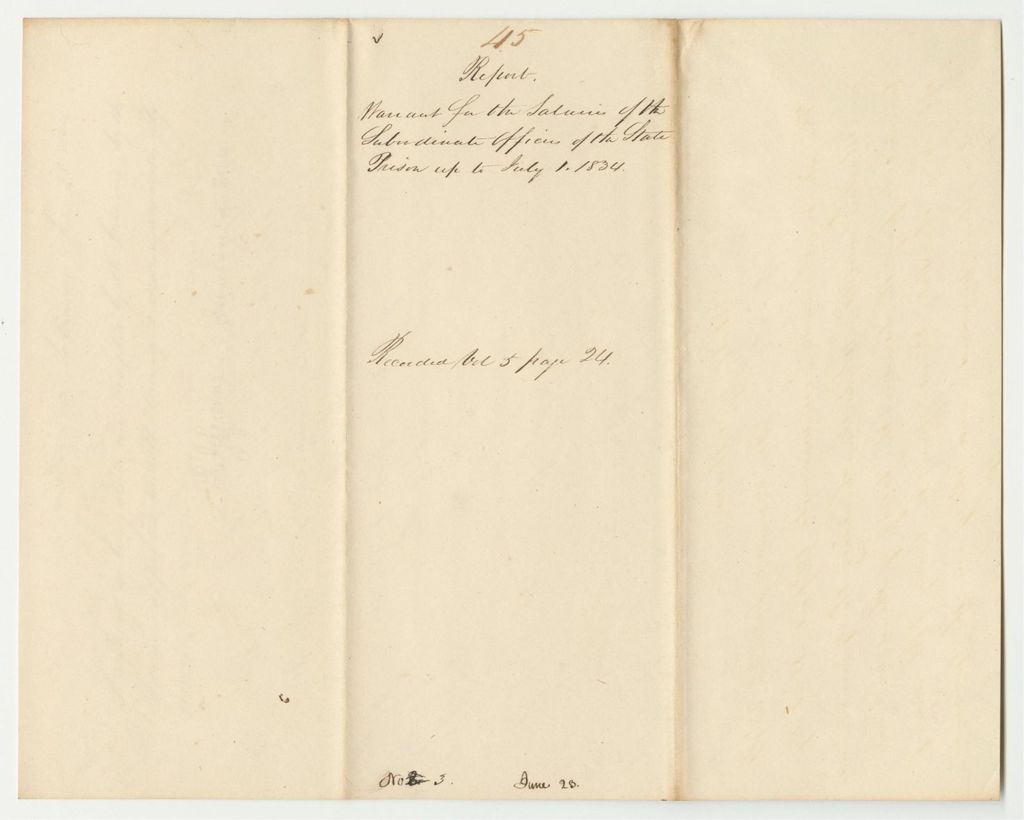 45
Report.
Warrant for the Salaries of the
Subordinate Officers of the State
Prison up to July 1. 1834.
Recorded Vol 5 page 24.
No 3. June 23.